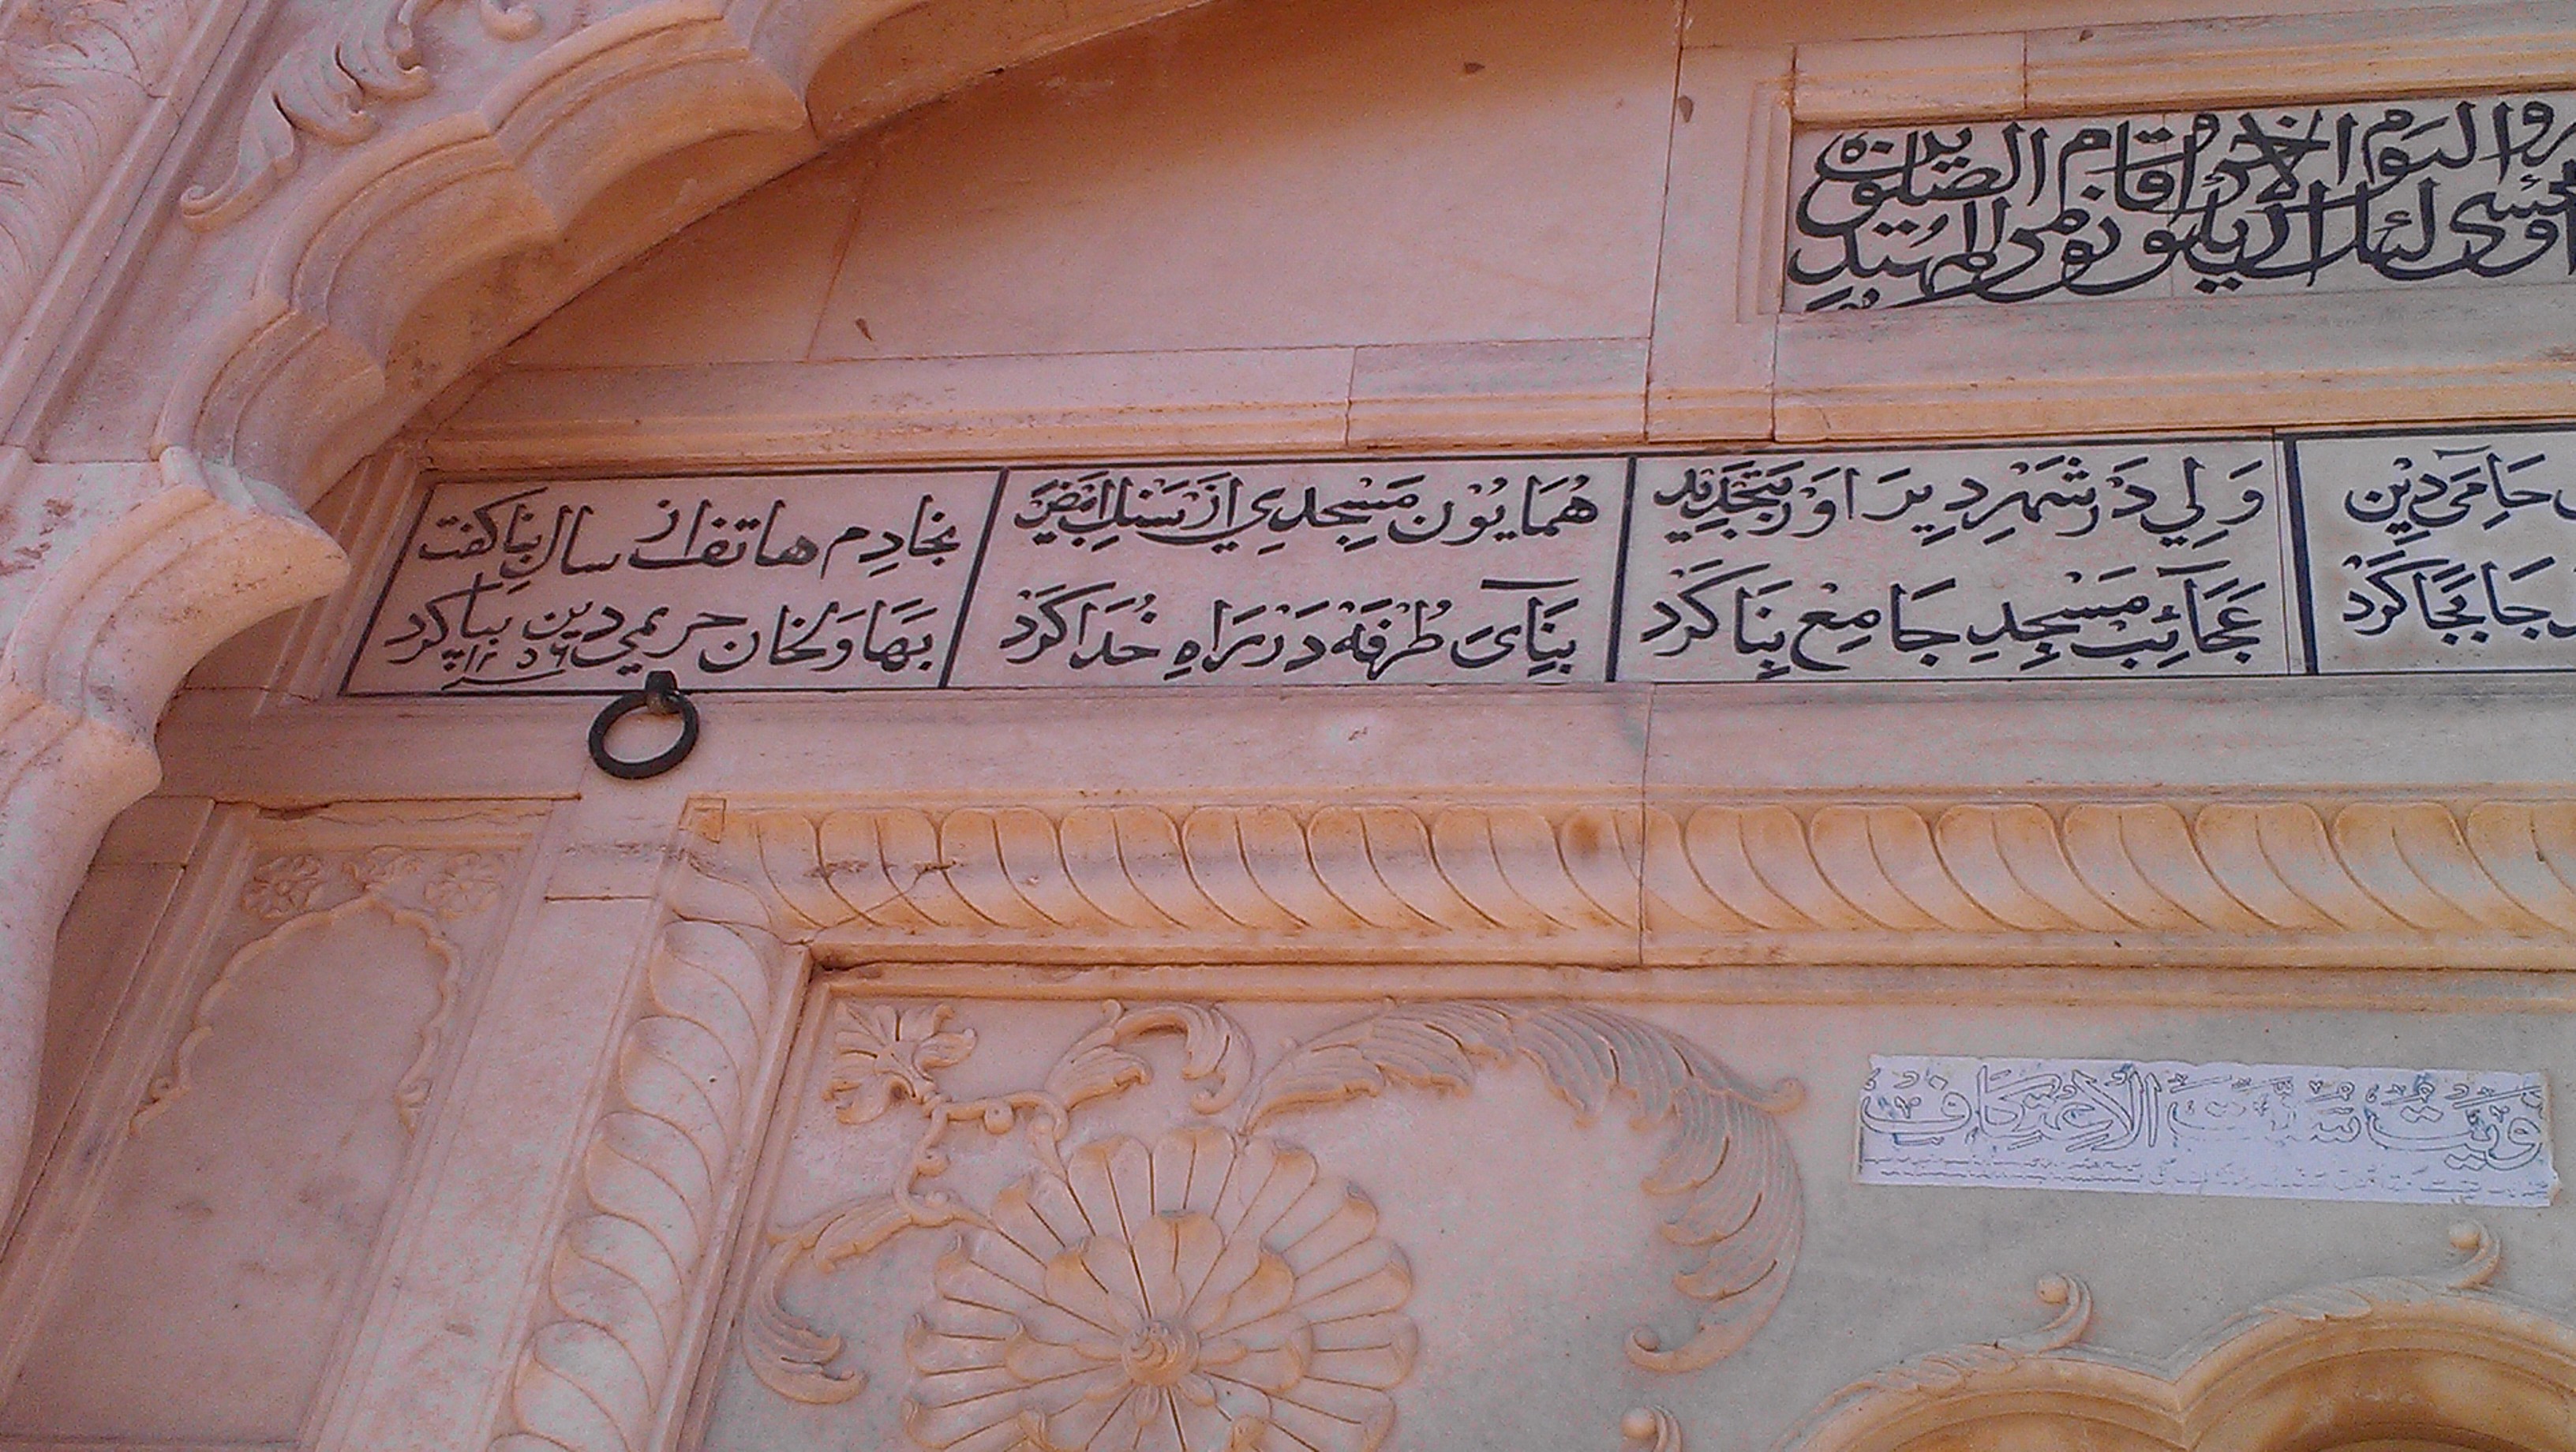 واليوم الآخر واقام الصلوة
اولئك ان يكونوا من المهتدين
حَامِیِ دِیْن
جَا بَجَا كَرْد
وَلِي دَرْ شَهْرِ دِيرَاوَرْ بَتَجْدِیْد
عَجَائِبْ مَسْجِدِ جَامِعْ بِنَا كَرْد
هُمَايُوْن مَسْجِدِي اَزْ سَنْگِ اَبْيَضْ
بِنَائےَ طُرْفَهْ دَرْ رَاهِ خُدَا كَرْد
بخادِم هاتف از سالِ بِنا گفت
بَهَاوَلخان حریمِ دین بپا کرد
۱۲۵۶
نَوَيْتُ سُنَّتَ الْاِعْتِكَافِ